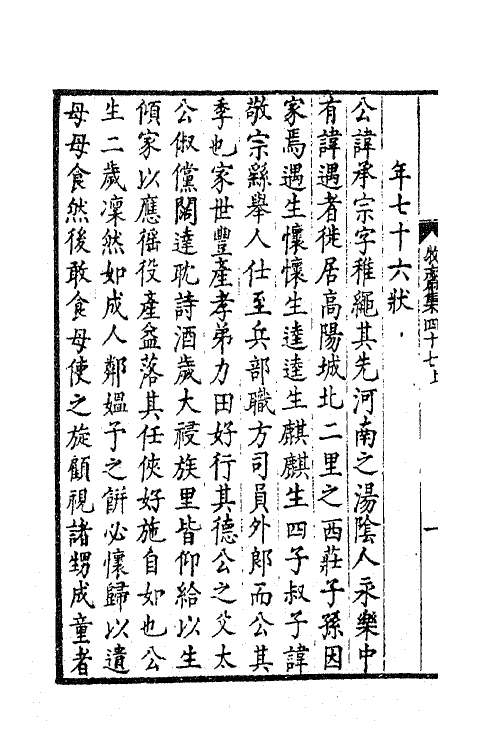 牧齋集四十七上
一
年七十六狀
公諱承宗字稚繩其先河南之湯陰人永樂中
有諱遇者徙居高陽城北二里之西莊子孫因
家焉遇生懷懷生逹逹生麒麒生四子叔子諱
敬宗繇舉人仕至兵部職方司員外郎而公其
季也家世豐產孝弟力田好行其德公之父太
公俶儻闊達耽詩酒歲大祲族里皆仰給以生
傾家以應徭役產益落其任俠好施自如也公
生二歲凜然如成人鄰媼予之餠必懷歸以遺
母母食然後敢食母使之旋顧視諸甥成童者